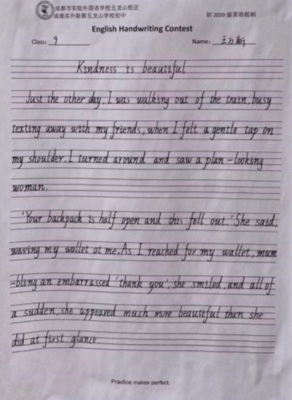 成都市实验外国语学校五龙山校区
成都实外新都五龙山学校初中
初2020级英语组制
English Handwriting Contest
Class: 9 Name:
Kindness is beautiful
Just the other day, I was walking out of the train, busy
texting away with my friends, when I felt a gentle tap on
my shoulder. I turned around and saw a plan-looking
woman.
'Your backpack is half open and this fell out.' She said,
waving my wallet at me. As I reached for my wallet, mum
-bling an embarrassed 'thank you', she smiled, and all of
a sudden, she appeared much more beautiful than she
did at first glance.
Practice makes perfect.